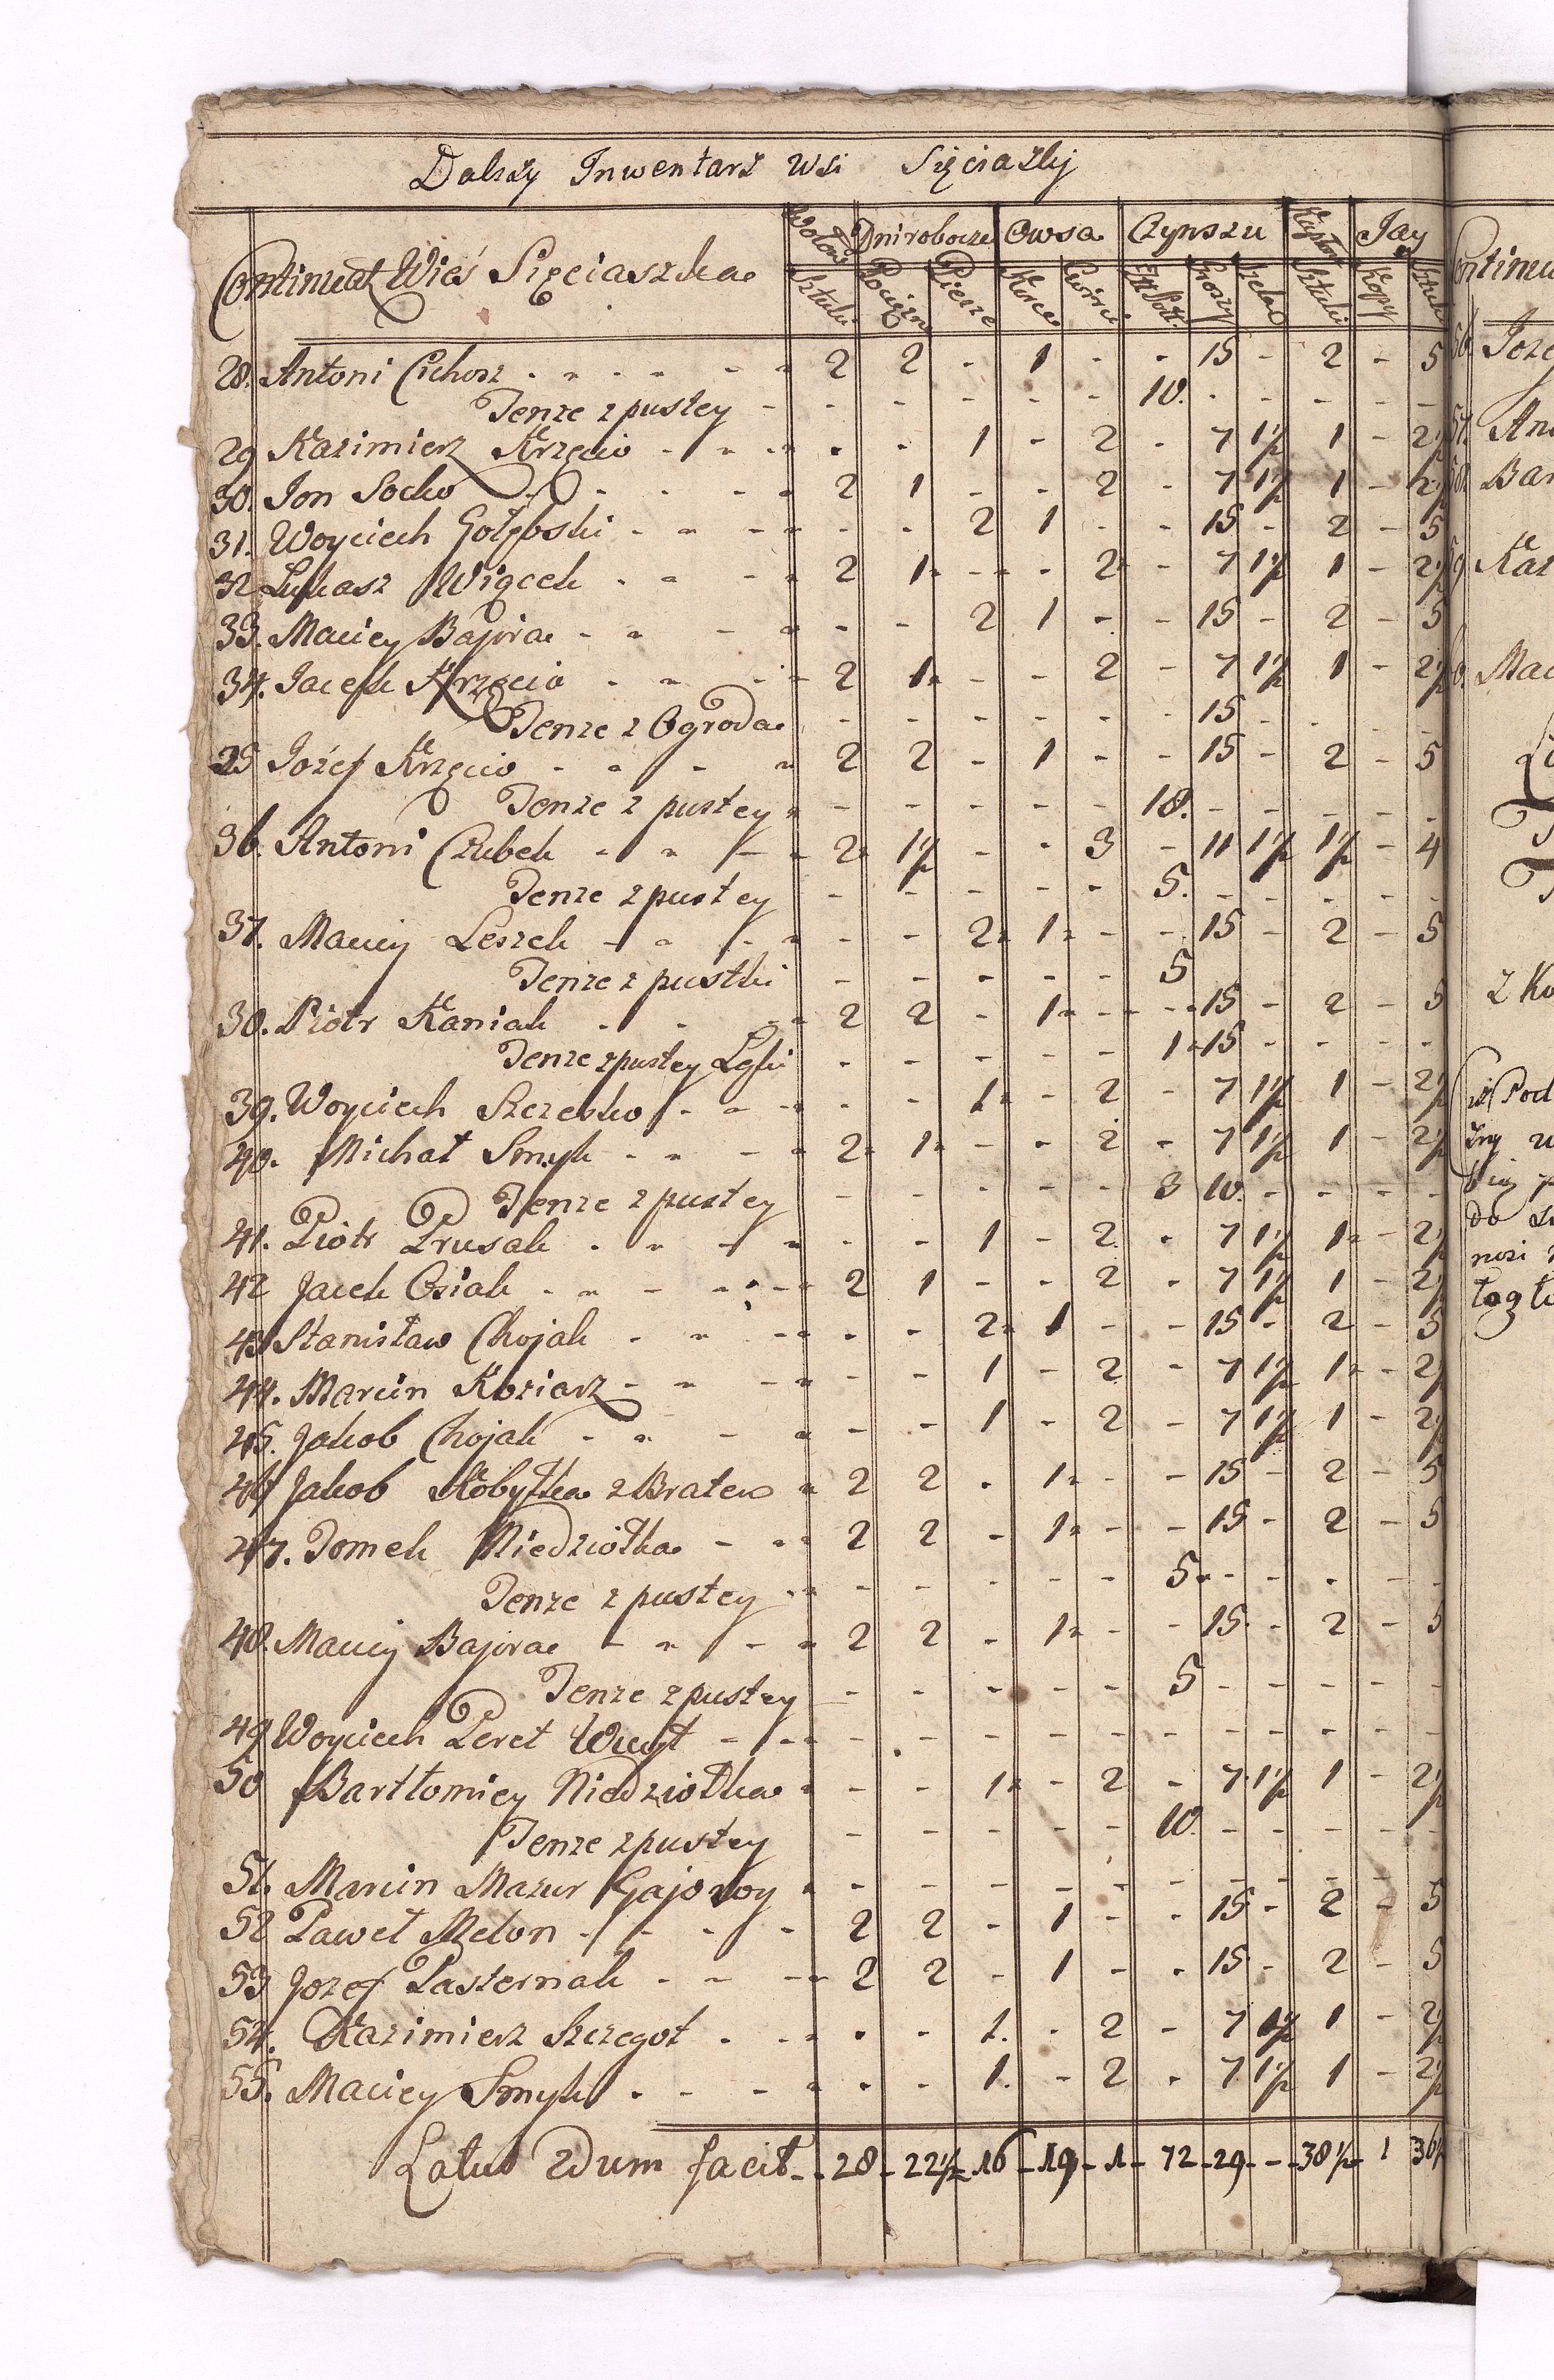 Dalszy Inwentarz Wsi Sięciaszki
Continuat Wieś Sięciaszka Wołów Dni robocze Owsa Czynszu Kapłon Jay
Sztuki Pociężn Piesze Korce Cwierci Zł Pol. Groszy Szeląg Sztuki Kopy Sztuki
28. Antoni Cichosz - - - - - - 2 2 - 1 - - 15 - 2 - 5
Tenze z pustey - - - - - - - 10. - - - - -
29 Kazimierz Krzęcio - - - - - - 1 - 2 - 7 1½ 1 - 2½
30. Jon Socko - - - - - 2 1 - - 2 - 7 1½ 1 - 2½
31. Woyciech Gołęboski - - - - - - 2 1 - - 15 - 2 - 5
32 Lukasz Wigcek - - - - 2 1 - - 2 - 7 1½ 1 - 2½
33. Maciey Bajora - - - - - - 2 1 - - 15 - 2 - 5
34. Jacek Krzęcio - - - - 2 1 - - 2 - 7 1½ 1 - 2½
Tenze z Ogroda - - - - - - 15 - - - -
35 Jozef Krzęcio - - - - 2 2 - 1 - - 15 - 2 - 5
Tenze z pustey - - - - - - 10. - - - - -
36. Antoni Czubek - - - - 2 1½ - - 3 - 11 1½ 1½ - 4
Tenze z pustey - - - - - 5. - - - - -
37. Maciey Leszek - - - - - - 2 1 - - 15 - 2 - 5
Tenze z pustki - - - - - 5
38. Piotr Kaniak - - - 2 2 - 1 - - 15 - 2 - 5
Tenze z pustey - - - - - 1 - 15 - - - -
39. Woyciech Szczesko - - - - - 1 - 2 - 7 1½ 1 - 2½
40. Michał Smyk - - - - 2 1 - - 2 - 7 1½ 1 - 2½
Tenze z pustey - - - - - 3 10. - - - -
41. Piotr Prusak - - - - - - 1 - 2 - 7 1½ 1 - 2½
42 Jacek Osiak - - - - - 2 1 - - 2 - 7 1½ 1 - 2½
43 Stanisław Chojak - - - - - - 2 1 - - 15 - 2 - 5
44. Marcin Koziarz - - - - - - 1 - 2 - 7 1½ 1 - 2½
45. Jakob Chojak - - - - - - 1 - 2 - 7 1½ 1 - 2½
46 Jakob Kobyłka z Bratem - 2 2 - 1 - - 15 - 2 - 5
47. Tomek Niedziołka - - - 2 2 - 1 - - 15 - 2 - 5
Tenze z pustey - - - - - - 5 - - - - -
48. Maciy Bajora - - - - 2 2 - 1 - - 15 - 2 - 5
Tenze z pustey - - - - - 5 - - - - -
49 Woyciech Peret Woyt - - - - - - - - - - - - - -
50 Bartłomiey Niedziołka - - - 1 - 2 - 7 1½ 1 - 2½
Tenze z pustey - - - - - 10. - - - - -
51. Marcin Mazur Gajowy - - - - - - - - - - - -
52 Paweł Melon - - - - 2 2 - 1 - - 15 - 2 - 5
53 Jozef Pasternak - - - - 2 2 - 1 - - 15 - 2 - 5
54. Kazimierz Szczegot - - - - - 1. - 2 - 7 1½ 1 - 2½
55. Maciey Smyk - - - - - - 1. - 2 - 7 1½ 1 - 2½
Latus 2dum facit - 28 - 22½ - 16 - 19 - 1 - 72 - 29 - - 38½ - 1 36½